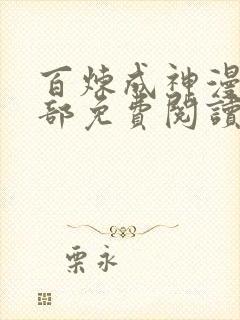 百煉成神漫
部免費閱讀
栗永